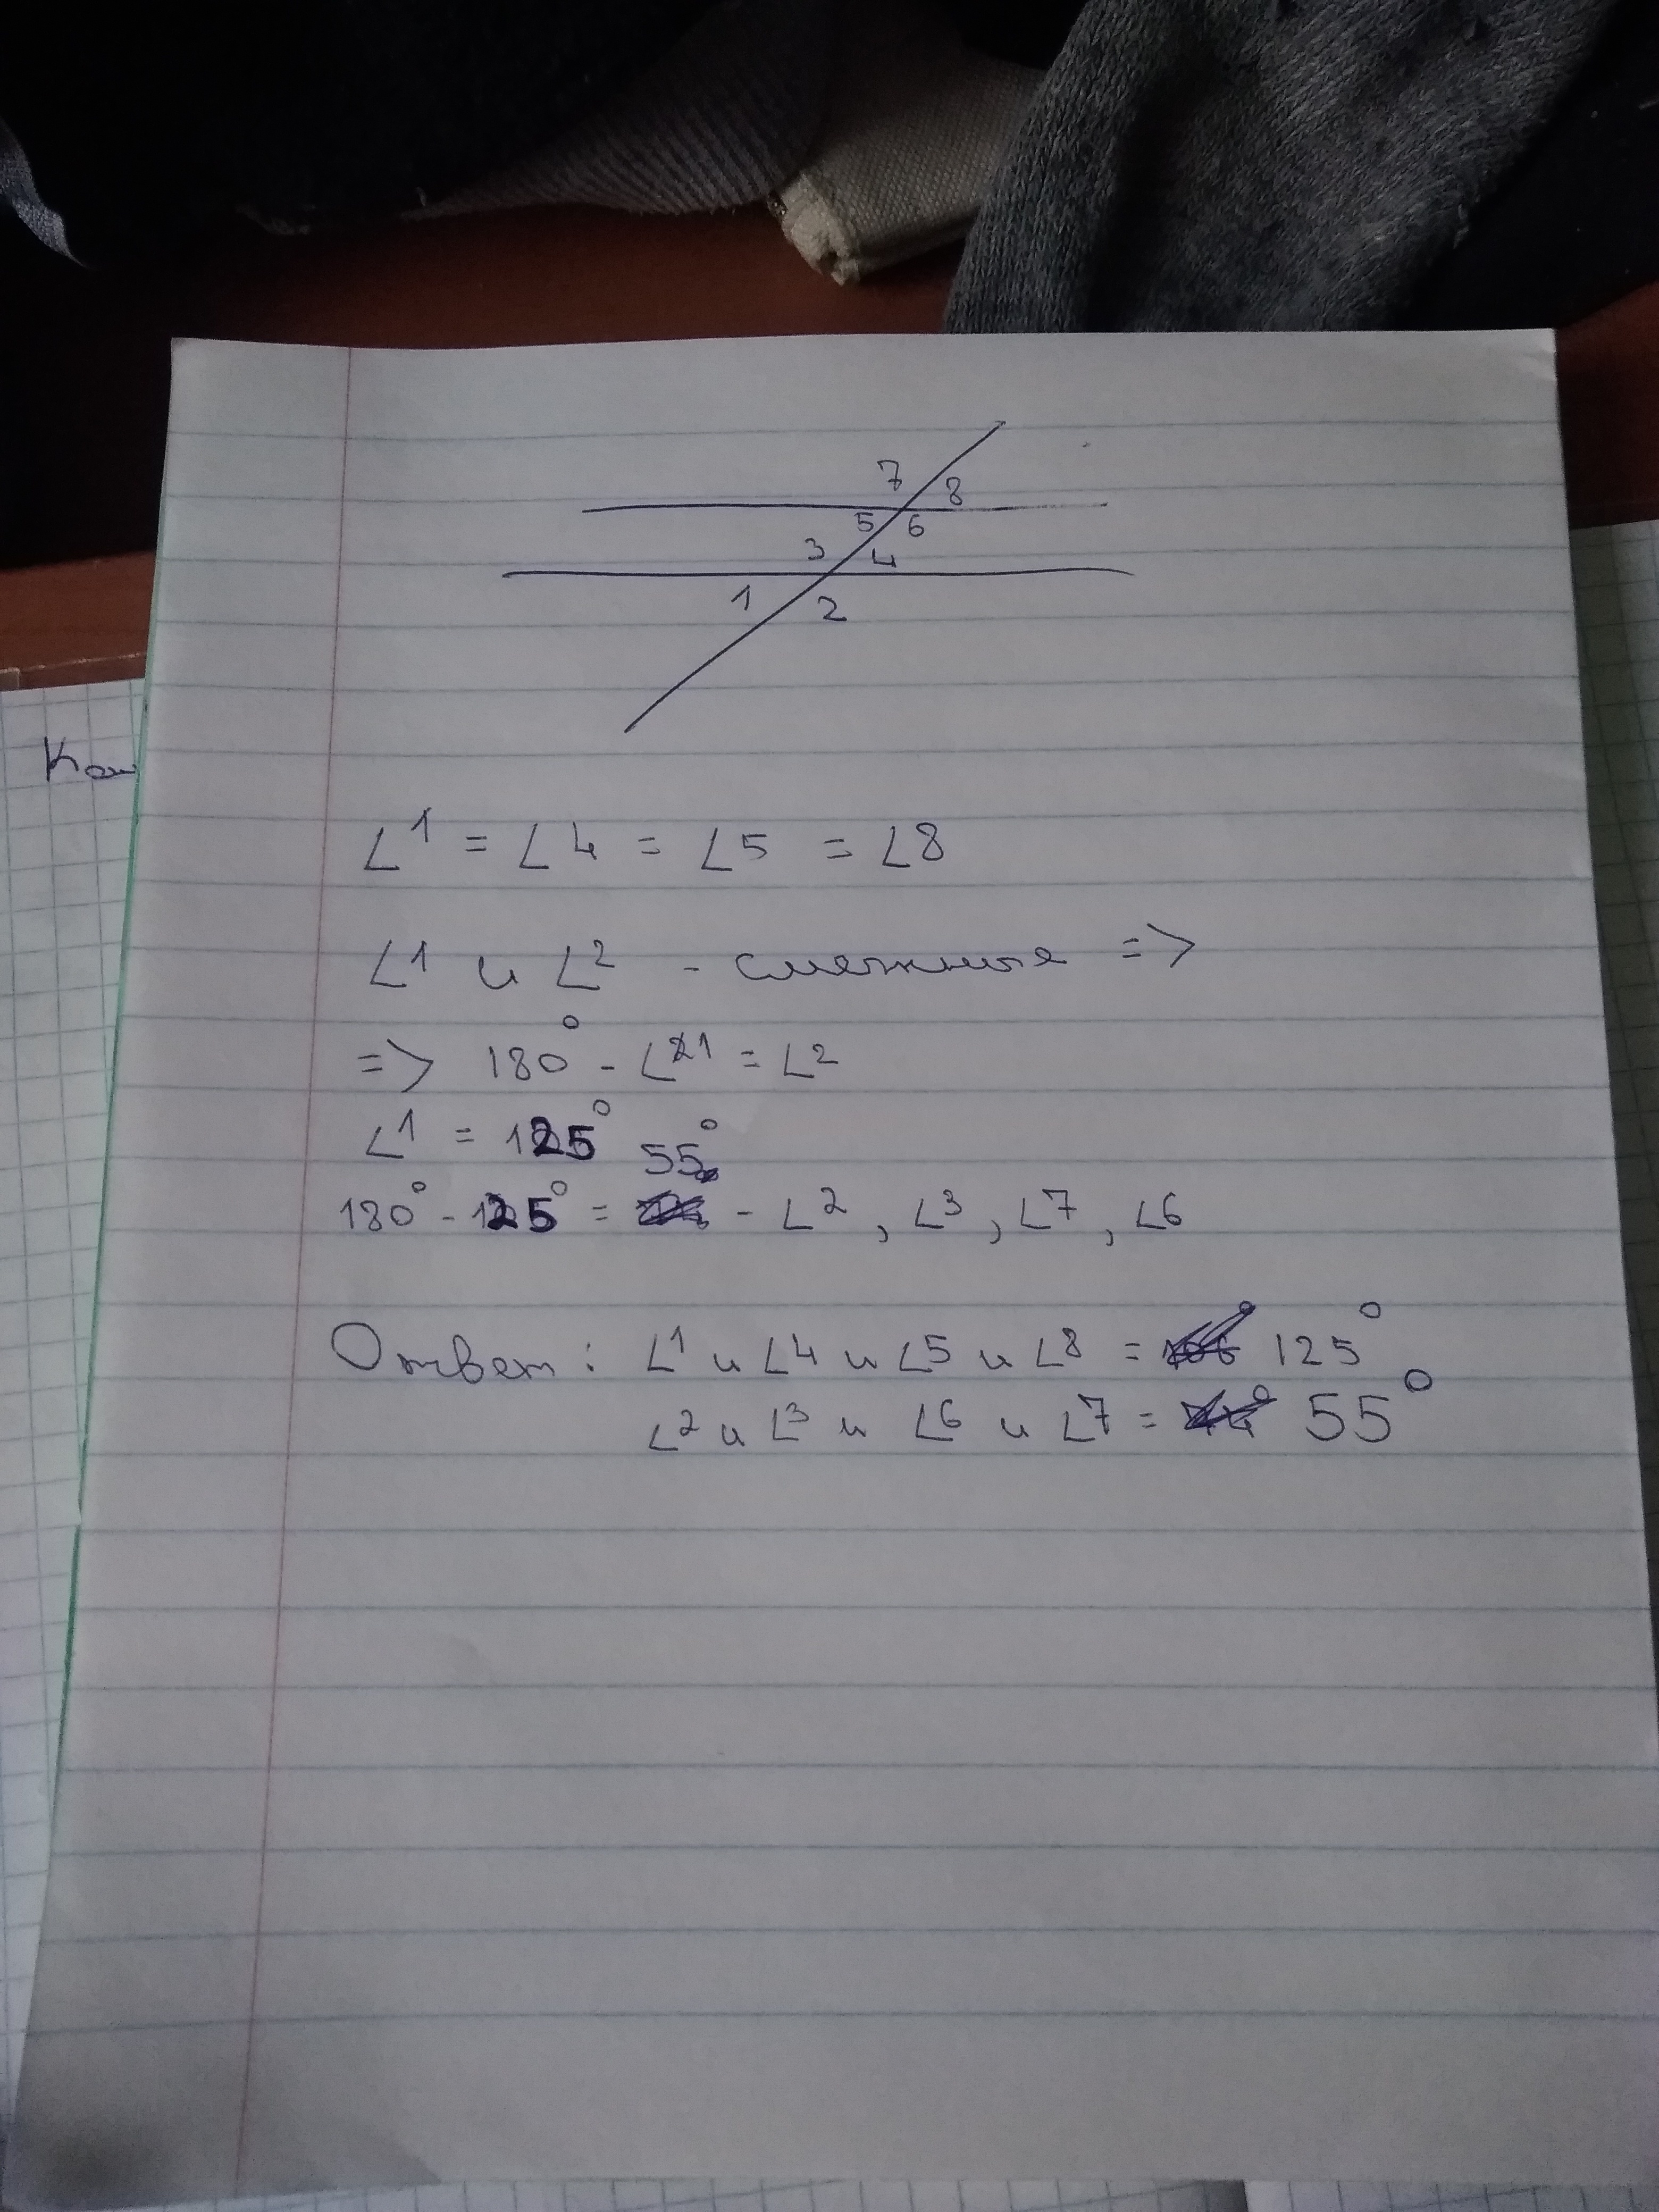 7 8
5 6
3 4
1 2
Кон
∠1 = ∠4 = ∠5 = ∠8
∠1 и ∠2 - смежные =>
=> 180° - ∠1 = ∠2
∠1 = 125°
55°
180° - 125° = - ∠2, ∠3, ∠7, ∠6
Ответ: ∠1 и ∠4 и ∠5 и ∠8 = 125°
∠2 и ∠3 и ∠6 и ∠7 = 55°